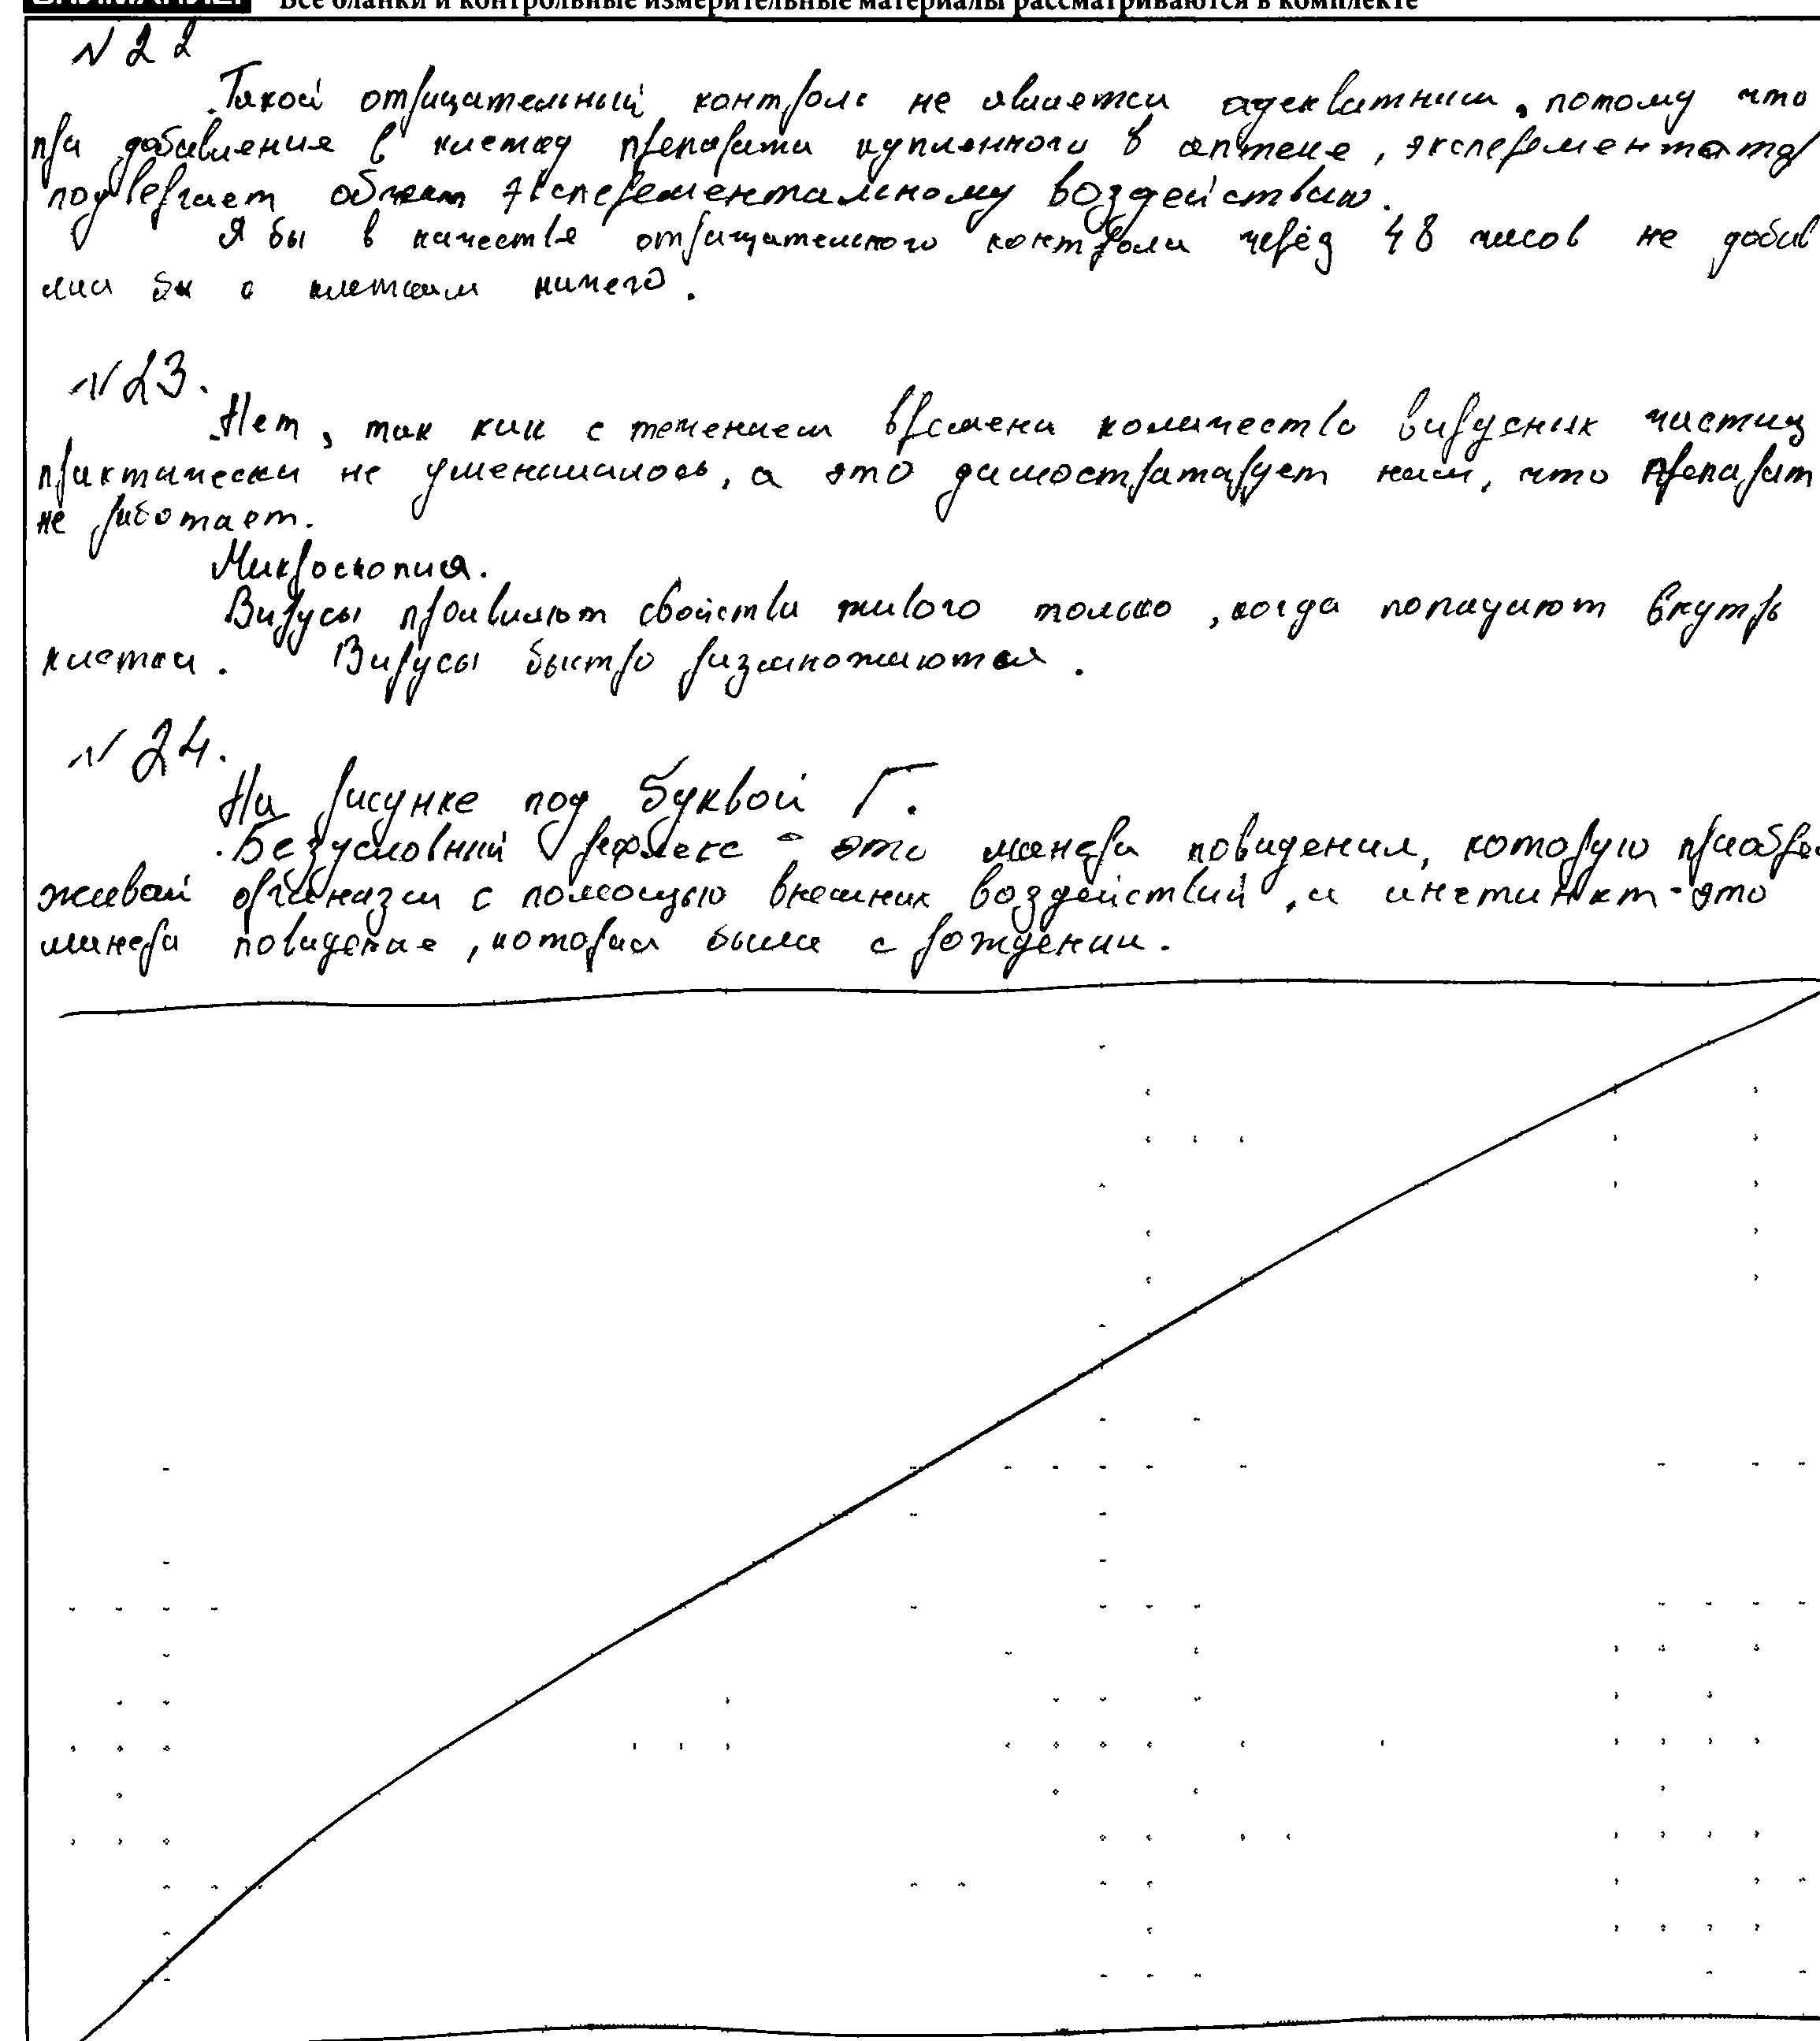 Все бланки и контрольные измерительные материалы рассматриваются в комплекте
№ 22
Такой отрицательный контроль не является адекватным, потому что
при добавления в клетку препарата купленного в аптеке, эксперементатор
подвергает объект эксперементальному воздействию.
Я бы в качестве отрицательного контроля через 48 часов не добав
лял бы к клеткам ничего.
№ 23.
Нет, так как с течением времени количество вирусных частиц
практически не уменшилось, а это димостратирует нам, что препарат
не работает.
Микроскопия.
Вирусы проявляют свойства живого только, когда попадают внутрь
клетки. Вирусы быстро размножаются.
№ 24.
На рисунке под буквой Г.
Безусловный рефлекс - это манера повидения, которую приобре
живой организм с помощью внешних воздействий, а инстинкт - это
манера повидение, которая была с рождении.